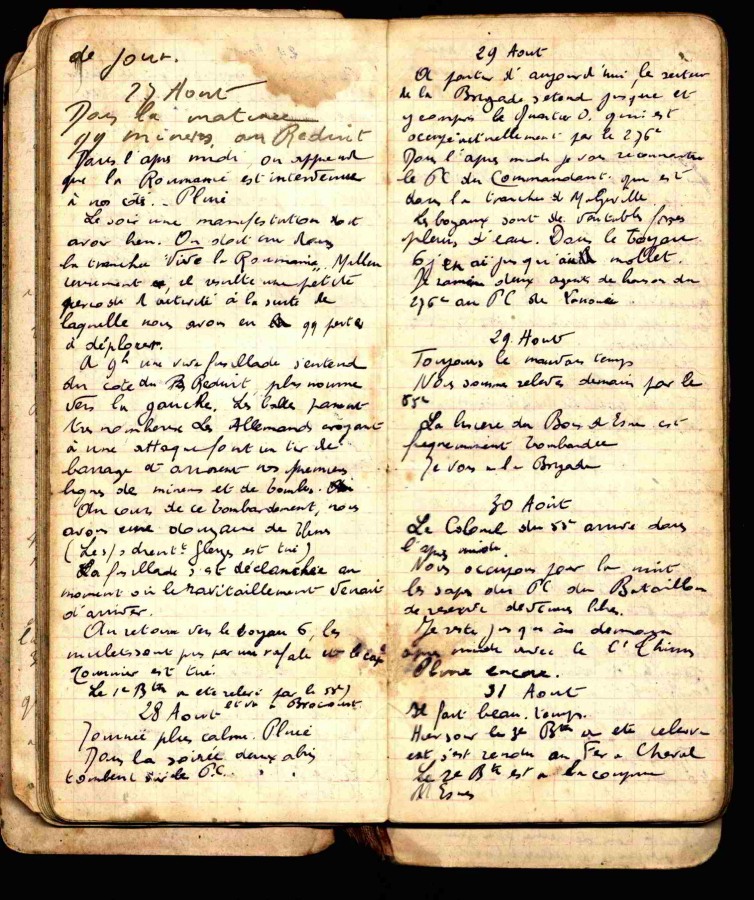 de jour.
27 Aout
Dans la matinee
qq mineres au Reduit
Dans l'apres midi, on apprend
que la Roumanie est intervenue
à nos coté. Pluie
Le soir une manifestation doit
avoir lieu. On doit crier dans
la tranchee "Vive la Roumanie".
il resulte une petite
periode d activité à la suite de
laquelle nous avons eu qq pertes
à déplorer.
A 9h une vive fusillade s'entend
du cote du B Reduit, plus nourrie
vers la gauche. Les balles passent
tres nombreuses Les Allemands croyant
à une attaque font un tir de
barrage et arrosent nos premieres
lignes de mineres et de bombes.
Au cours de ce bombardement, nous
avons une douzaine de blesses
(Le est tué)
La fusillade s'est déclanchée au
moment où le ravitaillement venait
d'arriver.
Au retour vers le boyau 6, les
mulets sont pris par une rafale et le cap
Tommier est tué.
Le 1e Btn a ete releve par le 55e
et va a Brocourt.
28 Aout
Journée plus calme. Pluie
Dans la soirée deux abris
tombent sur le P.C.
29 Aout
A partir d'aujourd'hui, le secteur
de la Brigade s'etend jusque et
y compris le Quartier O. qui est
occupé actuellement par le 276e
Dans l'apres midi je vais reconnaitre
le PC du Commandant qui est
dans la tranchee de Malgerville
Les boyaux sont de veritables fosses
pleins d'eau. Dans le boyau
6 j'en ai jusqu'au mollet.
Je ramene deux agents de liaison du
276e au PC de
29 Aout
Toujours le mauvais temps
Nous sommes releves demain par le
55e
La lisiere du Bois d Esnes est
bombardee
Je vais a la Brigade
30 Août
Le Colonel du 55e arrive dans
l'apres midi.
Nous occupons pour la nuit
les sapes du PC du Bataillon
de reserve devenus libres.
Je reste jusqu'a demain
apres midi avec le Ct
Pluie encore.
31 Aout
Il fait beau temps.
Hier soir le 3e Btn a ete releve
est s'est rendu au Fer a Cheval
Le 2e Btn est a la coupure
d Esnes